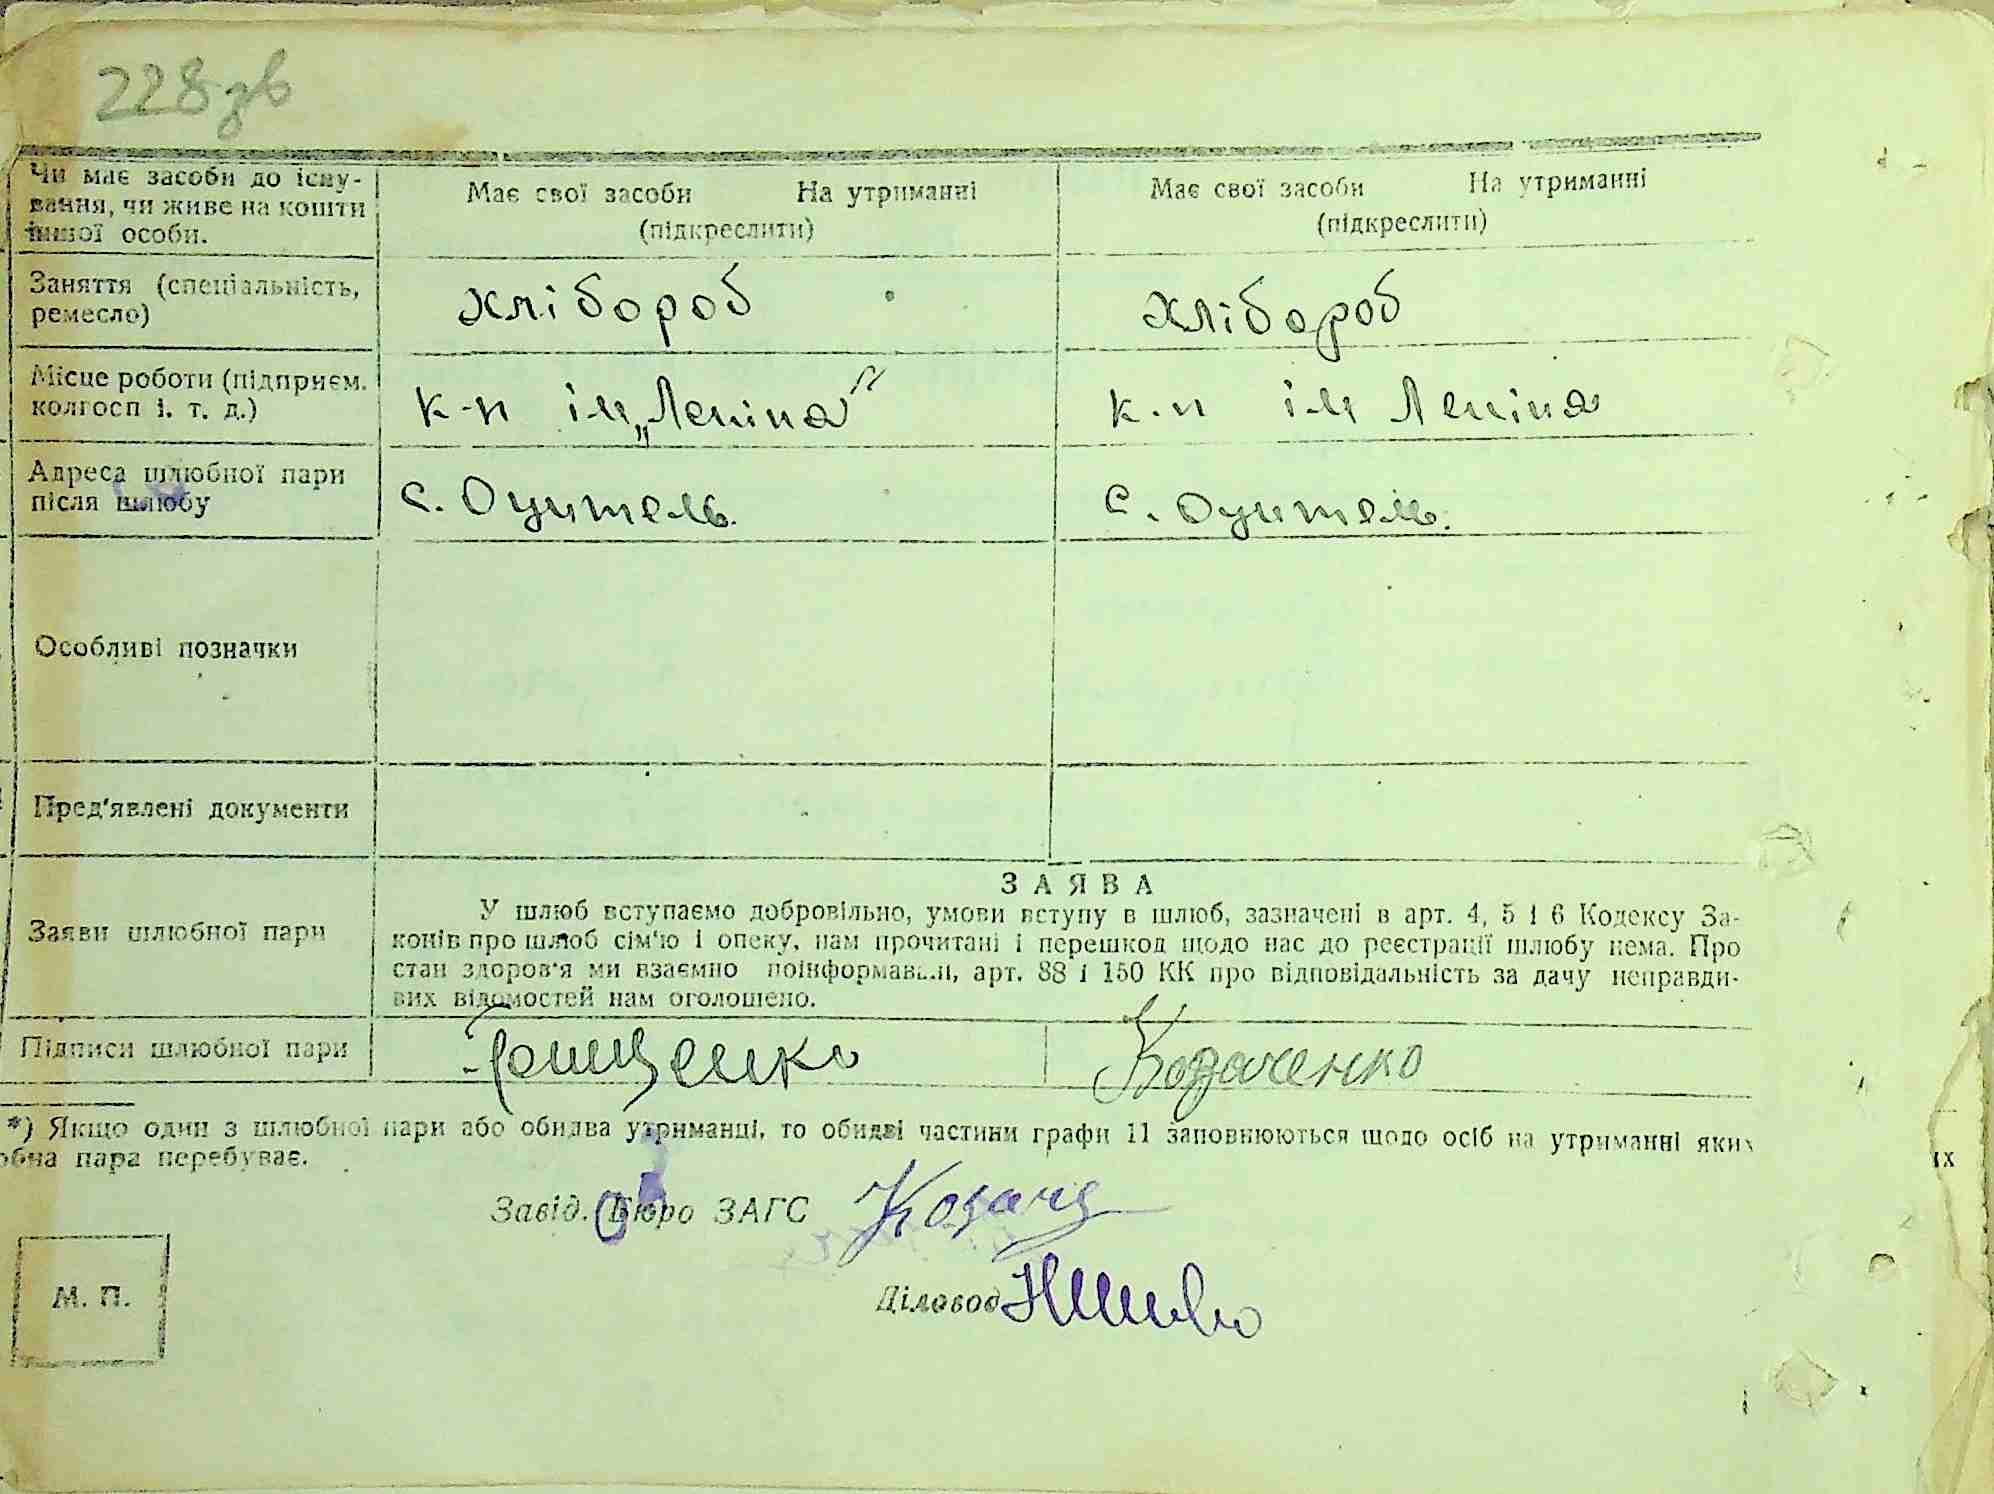 228зв
Чи має засоби до існу-
вання, чи живе на кошти
іншої особи.
Має свої засоби На утриманні
(підкреслити)
Має свої засоби На утриманні
(підкреслити)
Заняття (спеціальність,
ремесло)
хлібороб
хлібороб
Місце роботи (підприєм.
колгосп і. т. д.)
к-п ім „Леніна"
к-п ім Леніна
Адреса шлюбної пари
після шлюбу
с. Оцитель.
с. Оцитель.
Особливі позначки
Пред'явлені документи
Заяви шлюбної пари
ЗАЯВА
У шлюб вступаємо добровільно, умови вступу в шлюб, зазначені в арт. 4, 5 і 6 Кодексу За-
конів про шлюб сім'ю і опеку, нам прочитані і перешкод щодо нас до реєстрації шлюбу нема. Про
стан здоров'я ми взаємно поінформавали, арт. 88 і 150 КК про відповідальність за дачу неправди-
вих відомостей нам оголошено.
Підписи шлюбної пари
Козаченко
*) Якщо один з шлюбної пари або обидва утриманці, то обидві частини графи 11 заповнюються щодо осіб на утриманні яких
обна пара перебуває.
їх
Завід. Бюро ЗАГС
Діловод
М. П.